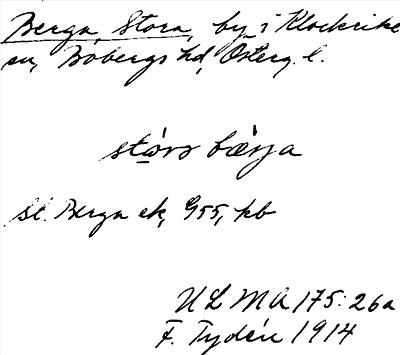 Berga, Stora, by i Klockrike
sn, Bobergs hd, Österg. l.
stɷ́rɷ bæ̀rja
St. Berga ek, G55, kb
ULMA 175:26a
F. Tydén 1914